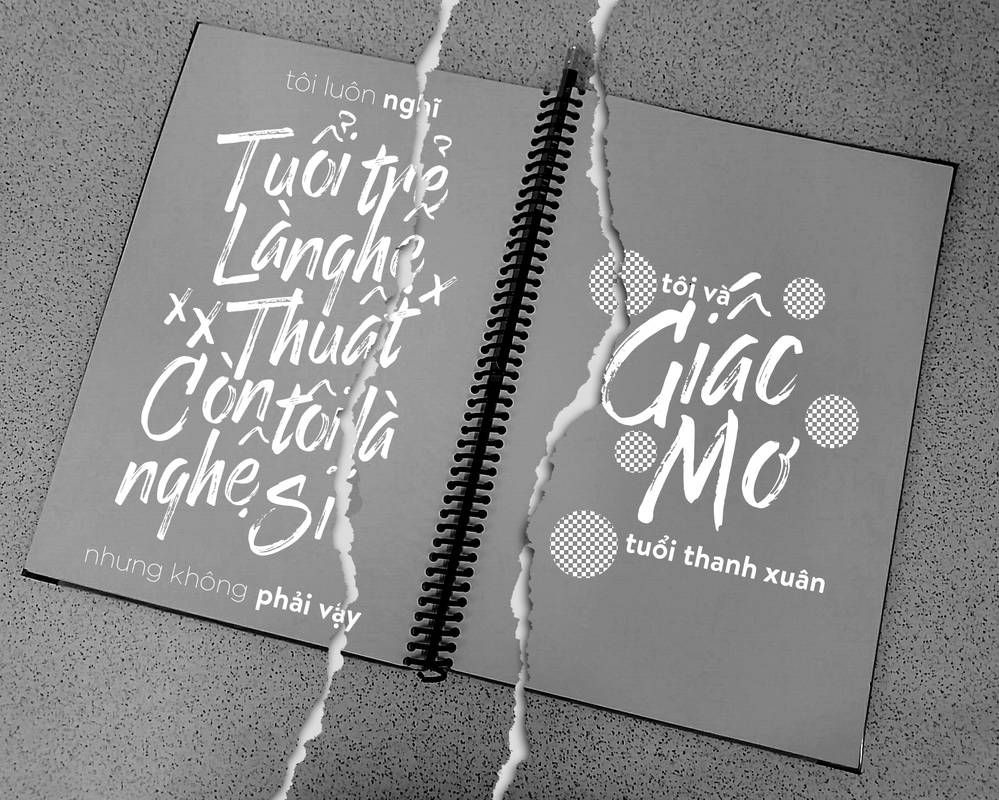 tôi luôn nghĩ
Tuổi trẻ
Là nghệ
Thuật
Còn tôi là
nghệ Sĩ
nhưng không phải vậy
tôi và
Giấc
Mơ
tuổi thanh xuân